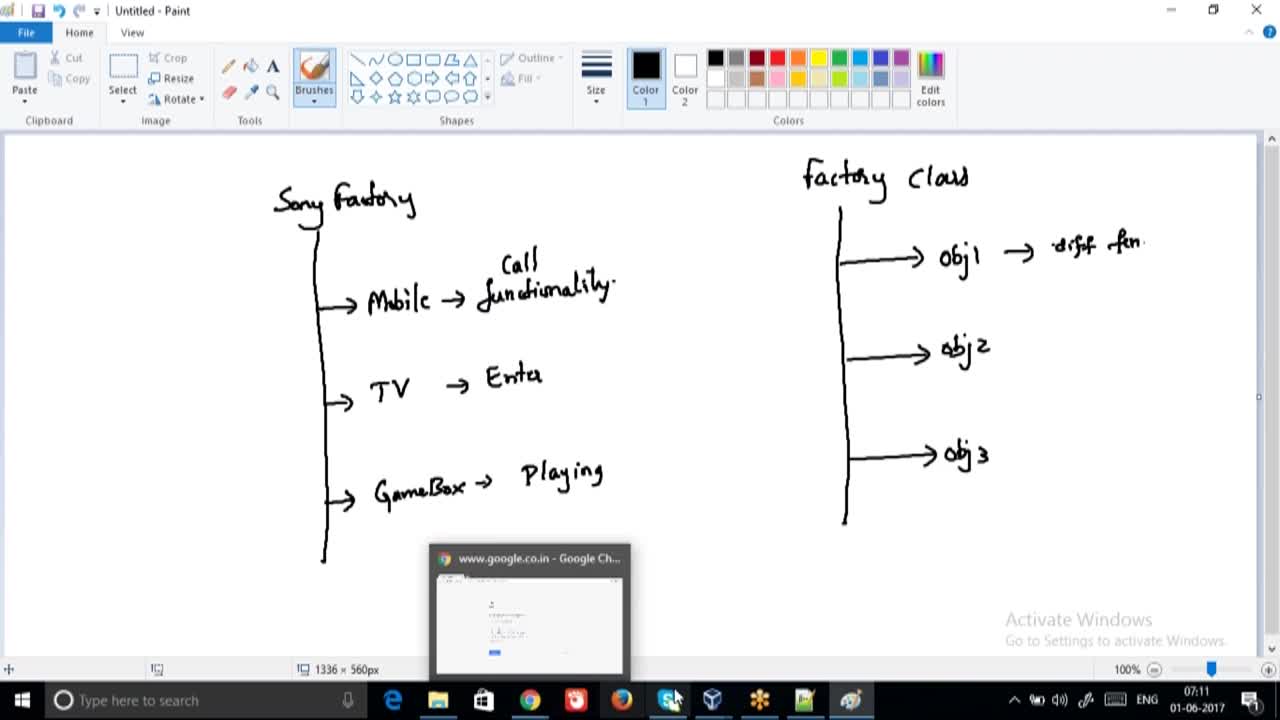 Untitled - Paint
File
Home
View
Paste
Cut
Copy
Clipboard
Select
Crop
Resize
Rotate
Image
Tools
Brushes
Outline
Fill
Shapes
Size
Color 1
Color 2
Edit colors
Colors
Sony Factory
Mobile → Call functionality.
TV → Enter
GameBox → Playing
Factory Class
obj1 → diff fun.
obj2
obj3
www.google.co.in - Google Ch...
Activate Windows
Go to Settings to activate Windows.
1336 × 560px
100%
Type here to search
ENG
07:11
01-06-2017